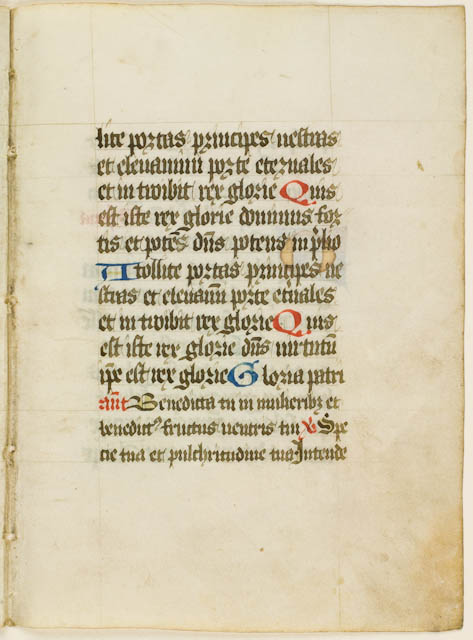 lite portas principes uestras
et eleuamini porte eternales
et introibit rex glorie Quis
est iste rex glorie dominus for
tis et potēs dn̄s potens in p̄lio
Atollite portas principes ue
stras et eleuam̄i porte et̄nales
et introibit rex glorie Quis
est iste rex glorie dn̄s uirtutū
ip̄e est rex glorie Gloria patri
an̄t Benedicta tu in mulieribꝫ et
benedictꝰ fructus uentris tui ℣ Spe
cie tua et pulchritudine tua Intende